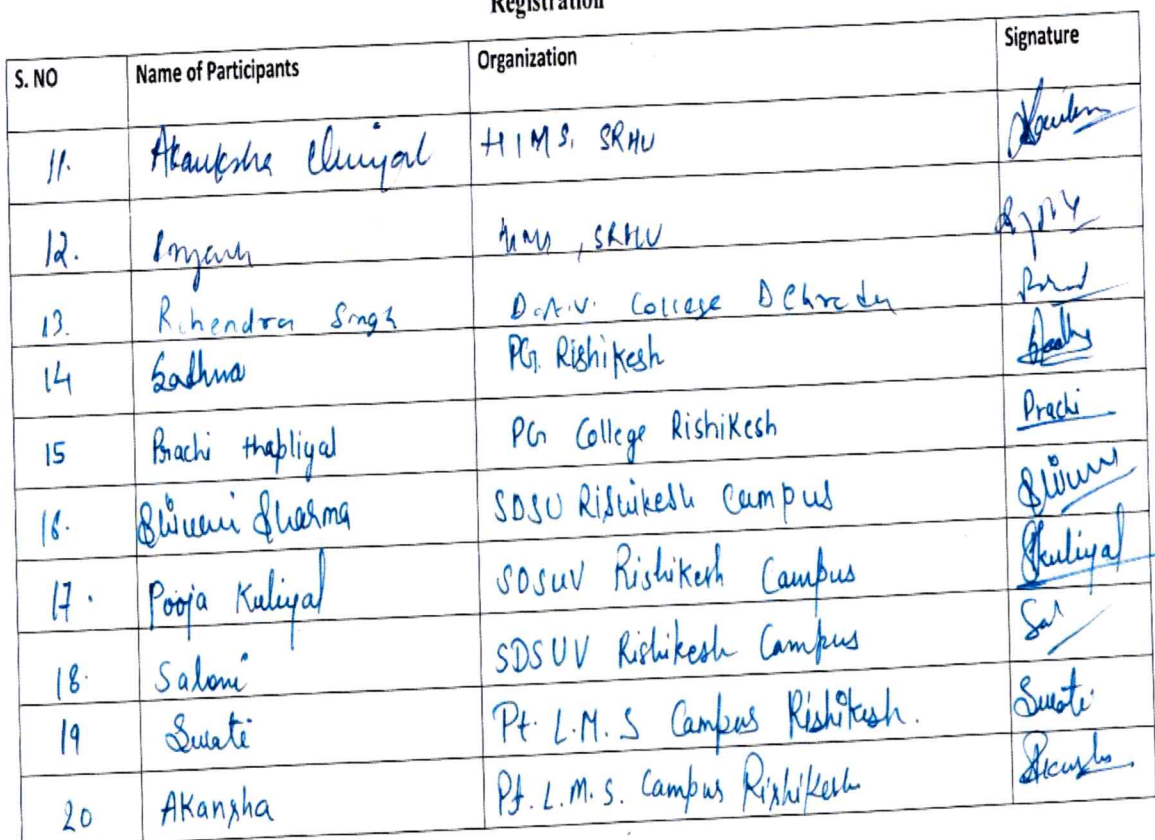 Registration
S. NO Name of Participants Organization Signature
11. Akanksha HIMS, SRHU
12. SRHU
13. Singh D.A.V. College
14 Sadhna PG. Rishikesh
15 Prachi Thapliyal PG College Rishikesh Prachi
16. Shivani Sharma SDSU Rishikesh Campus
17. Pooja Kuliyal SDSUV Rishikesh Campus Pkuliyal
18. Saloni SDSUV Rishikesh Campus Sal
19 Swati Pt. L.M.S Campus Rishikesh. Swati
20 Akansha Pt. L.M.S. Campus Rishikesh